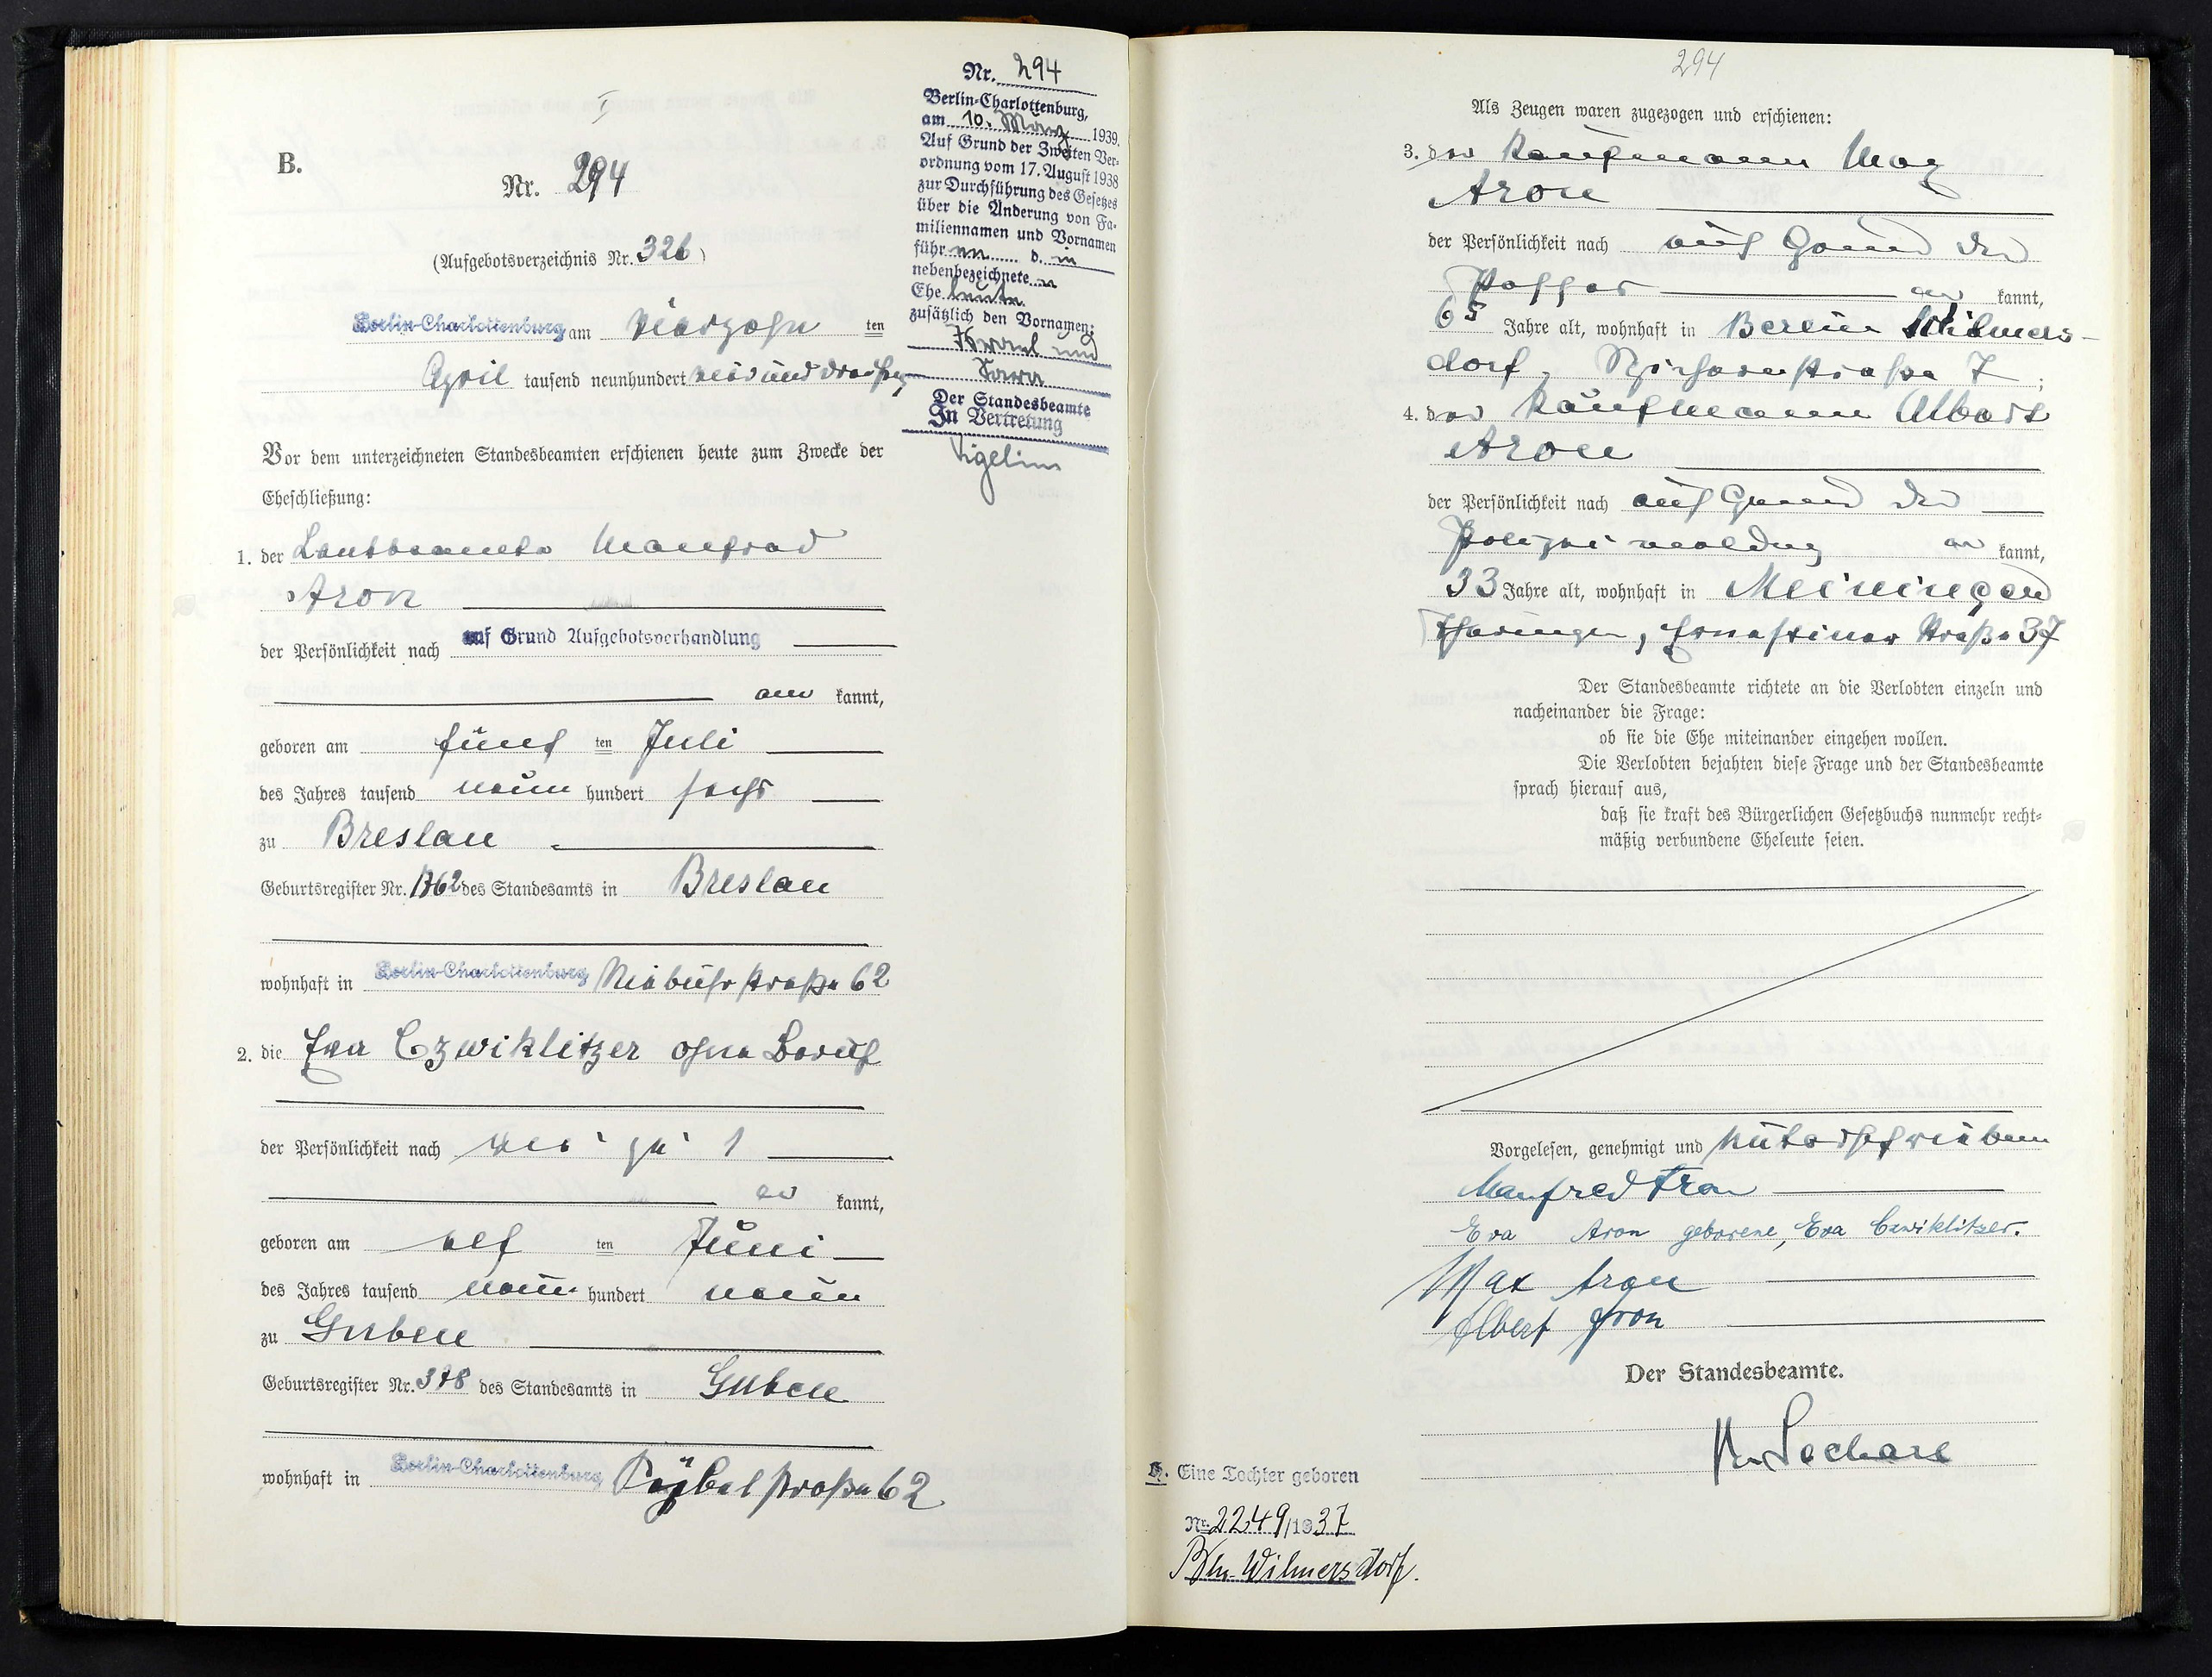 B.
Nr. 294
(Aufgebotsverzeichnis Nr. 326)
Berlin-Charlottenburg am vierzehn ten
April tausend neunhundert vierunddreißig
Vor dem unterzeichneten Standesbeamten erschienen heute zum Zwecke der
Eheschließung:
1. der Manfred
Aron
der Persönlichkeit nach auf Grund Aufgebotsverhandlung
aner kannt,
geboren am fünf ten Juli
des Jahres tausend neun hundert sechs
zu Breslau
Geburtsregister Nr. des Standesamts in Breslau
wohnhaft in Berlin-Charlottenburg Niebuhrstraße 62
2. die Eva Czwiklitzer ohne Beruf
der Persönlichkeit nach wie zu 1
er kannt,
geboren am elf ten Juni
des Jahres tausend neun hundert neun
zu Guben
Geburtsregister Nr. 378 des Standesamts in Guben
wohnhaft in Berlin-Charlottenburg 62
Nr. 294
Berlin-Charlottenburg,
am 10. März 1939.
Auf Grund der Zweiten Ver-
ordnung vom 17. August 1938
zur Durchführung des Gesetzes
über die Änderung von Fa-
miliennamen und Vornamen
führen d. in
nebenbezeichneten
Eheleute
zusätzlich den Vornamen:
Israel und
Sara
Der Standesbeamte
In Vertretung
Vigelius
294
Als Zeugen waren zugezogen und erschienen:
3. der Kaufmann Max
Aron
der Persönlichkeit nach auf Grund des
Passes aner kannt,
65 Jahre alt, wohnhaft in Berlin Wilmers-
dorf, Spichernstraße 7;
4. der Kaufmann Albert
Aron
der Persönlichkeit nach auf Grund der
Polizeimeldung aner kannt,
33 Jahre alt, wohnhaft in Meiningen
Thüringen, Ernestiner Straße 37
Der Standesbeamte richtete an die Verlobten einzeln und
nacheinander die Frage:
ob sie die Ehe miteinander eingehen wollen.
Die Verlobten bejahten diese Frage und der Standesbeamte
sprach hierauf aus,
daß sie kraft des Bürgerlichen Gesetzbuchs nunmehr recht-
mäßig verbundene Eheleute seien.
Vorgelesen, genehmigt und unterschrieben
Manfred Aron
Eva Aron geborene, Eva Czwiklitzer.
Max Aron
Albert Aron
Der Standesbeamte.
Eine Tochter geboren
Nr. 2249/1937
Bln-Wilmersdorf.